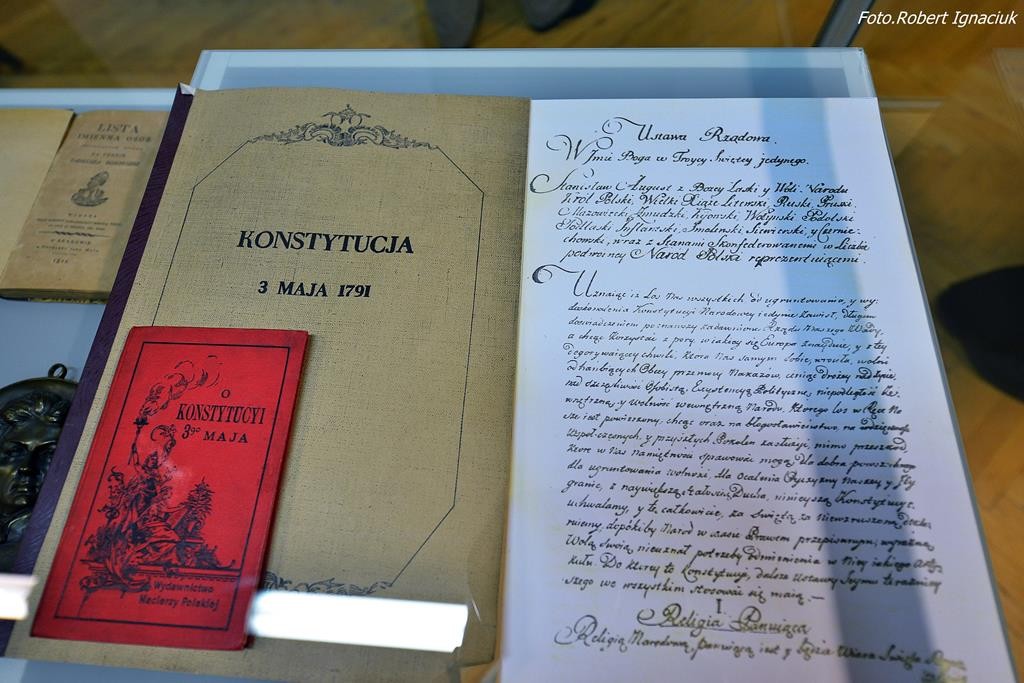 Foto.Robert Ignaciuk
LISTA
IMIENNA OSOB
W KRAKOWIE
KONSTYTUCJA
3 MAJA 1791
O
KONSTYTUCYI
3go MAJA
Wydawnictwo
Macierzy Polskiej
Ustawa Rządowa.
W Imie Boga w Troycy Swiętey jedynego.
Stanisław August z Bożey Łaski y Woli Narodu
Król Polski, Wielki Xiąże Litewski, Ruski, Pruski,
Mazowiecki, Żmudzki, Kijowski, Wołyński, Podolski
Podlaski, Inflantski, Smolenski, Siewierski, y Czernie-
chowski, wraz z Stanami Skonfederowanemi w Liczbie
podwoiney Narod Polski reprezentuiącemi.
Uznaiąc iż Los Nas wszystkich od ugruntowania, y wy-
doskonalenia Konstytucyi Narodowey iedynie zawisł, długim
doswiadczeniem poznawszy zadawnione Rządu Naszego Wady,
a chcąc korzystać z pory, w iakiey się Europa znayduie, y z tey
dogorywaiącey chwili, ktora Nas samym Sobie wrociła, wolni
od hanbiących Obcey przemocy Nakazow, ceniąc drożey nad życie,
nad szczęśliwość Osobistą, Exystencyą Polityczną, niepodległość ze-
wnętrzną, y wolność wewnętrzną Narodu, ktorego los w Ręce Na-
sze iest powierzony, chcąc oraz na błogosławienstwo, na
Wspołczesnych, y przyszłych Pokoleń zasłużyć, mimo przeszkod,
ktore w Nas namiętności sprawować mogą dla dobra powszechnego
dla ugruntowania wolności, dla Ocalenia Oyczyzny Naszey y Jey
granic, z naywiększą stałością Ducha, ninieyszą Konstytucyę
uchwalamy, y tę całkowicie za Swiętą, za niewzruszoną dekla-
ruiemy, dopokiby Narod w czasie Prawem przepisanym, wyraźną
Wolą swoią nieuznał potrzeby odmienienia w Niey iakiego Arty-
kułu. Do ktorey to Konstytucyi, dalsze Ustawy Seymu teraźniey-
szego we wszystkim stosować się maią.—
I.
Religia Panuiąca
Religią Narodową panuiącą iest y będzie Wiara Swięta